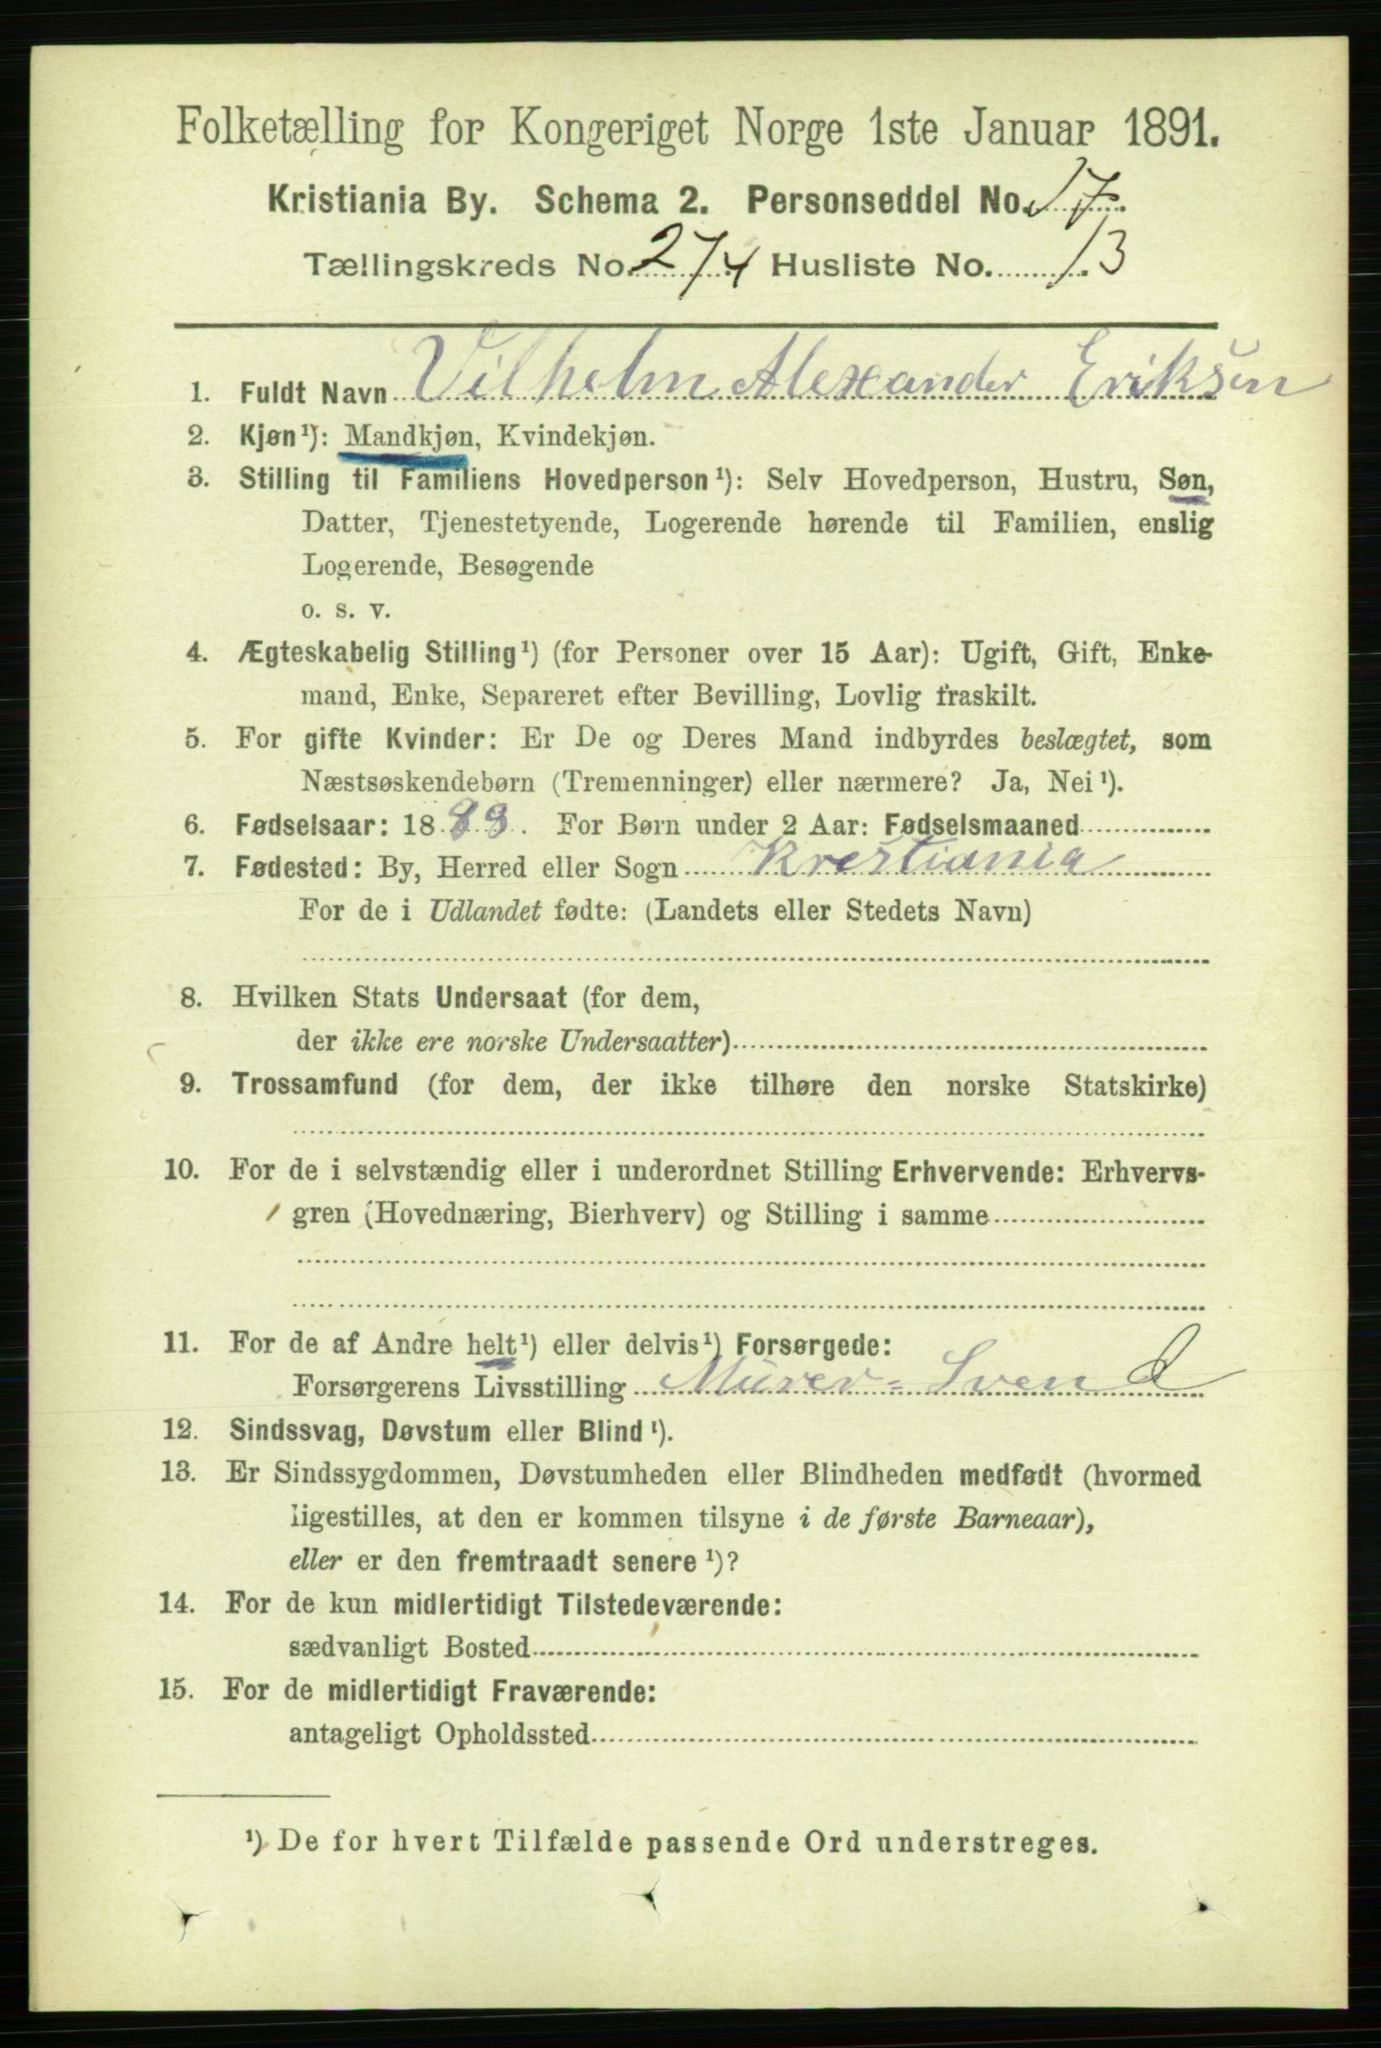 Folketælling for Kongeriget Norge 1ste Januar 1891.
Kristiania By. Schema 2. Personseddel No. 17.
Tællingskreds No. 274 Husliste No. 13
1. Fuldt Navn Vilhelm Alexander Eriksen
2. Kjøn¹): Mandkjøn, Kvindekjøn.
3. Stilling til Familiens Hovedperson¹): Selv Hovedperson, Hustru, Søn,
Datter, Tjenestetyende, Logerende hørende til Familien, enslig
Logerende, Besøgende
o. s. v.
4. Ægteskabelig Stilling¹) (for Personer over 15 Aar): Ugift, Gift, Enke-
mand, Enke, Separeret efter Bevilling, Lovlig fraskilt.
5. For gifte Kvinder: Er De og Deres Mand indbyrdes beslægtet, som
Næstsøskendebørn (Tremenninger) eller nærmere? Ja, Nei¹).
6. Fødselsaar: 18 . For Børn under 2 Aar: Fødselsmaaned
7. Fødested: By, Herred eller Sogn Krestiania
For de i Udlandet fødte: (Landets eller Stedets Navn)
8. Hvilken Stats Undersaat (for dem,
der ikke ere norske Undersaatter)
9. Trossamfund (for dem, der ikke tilhøre den norske Statskirke)
10. For de i selvstændig eller i underordnet Stilling Erhvervende: Erhvervs-
gren (Hovednæring, Bierhverv) og Stilling i samme
11. For de af Andre helt¹) eller delvis¹) Forsørgede:
Forsørgerens Livsstilling Murer-Svend
12. Sindssvag, Døvstum eller Blind¹).
13. Er Sindssygdommen, Døvstumheden eller Blindheden medfødt (hvormed
ligestilles, at den er kommen tilsyne i de første Barneaar),
eller er den fremtraadt senere¹)?
14. For de kun midlertidigt Tilstedeværende:
sædvanligt Bosted
15. For de midlertidigt Fraværende:
antageligt Opholdssted
¹) De for hvert Tilfælde passende Ord understreges.